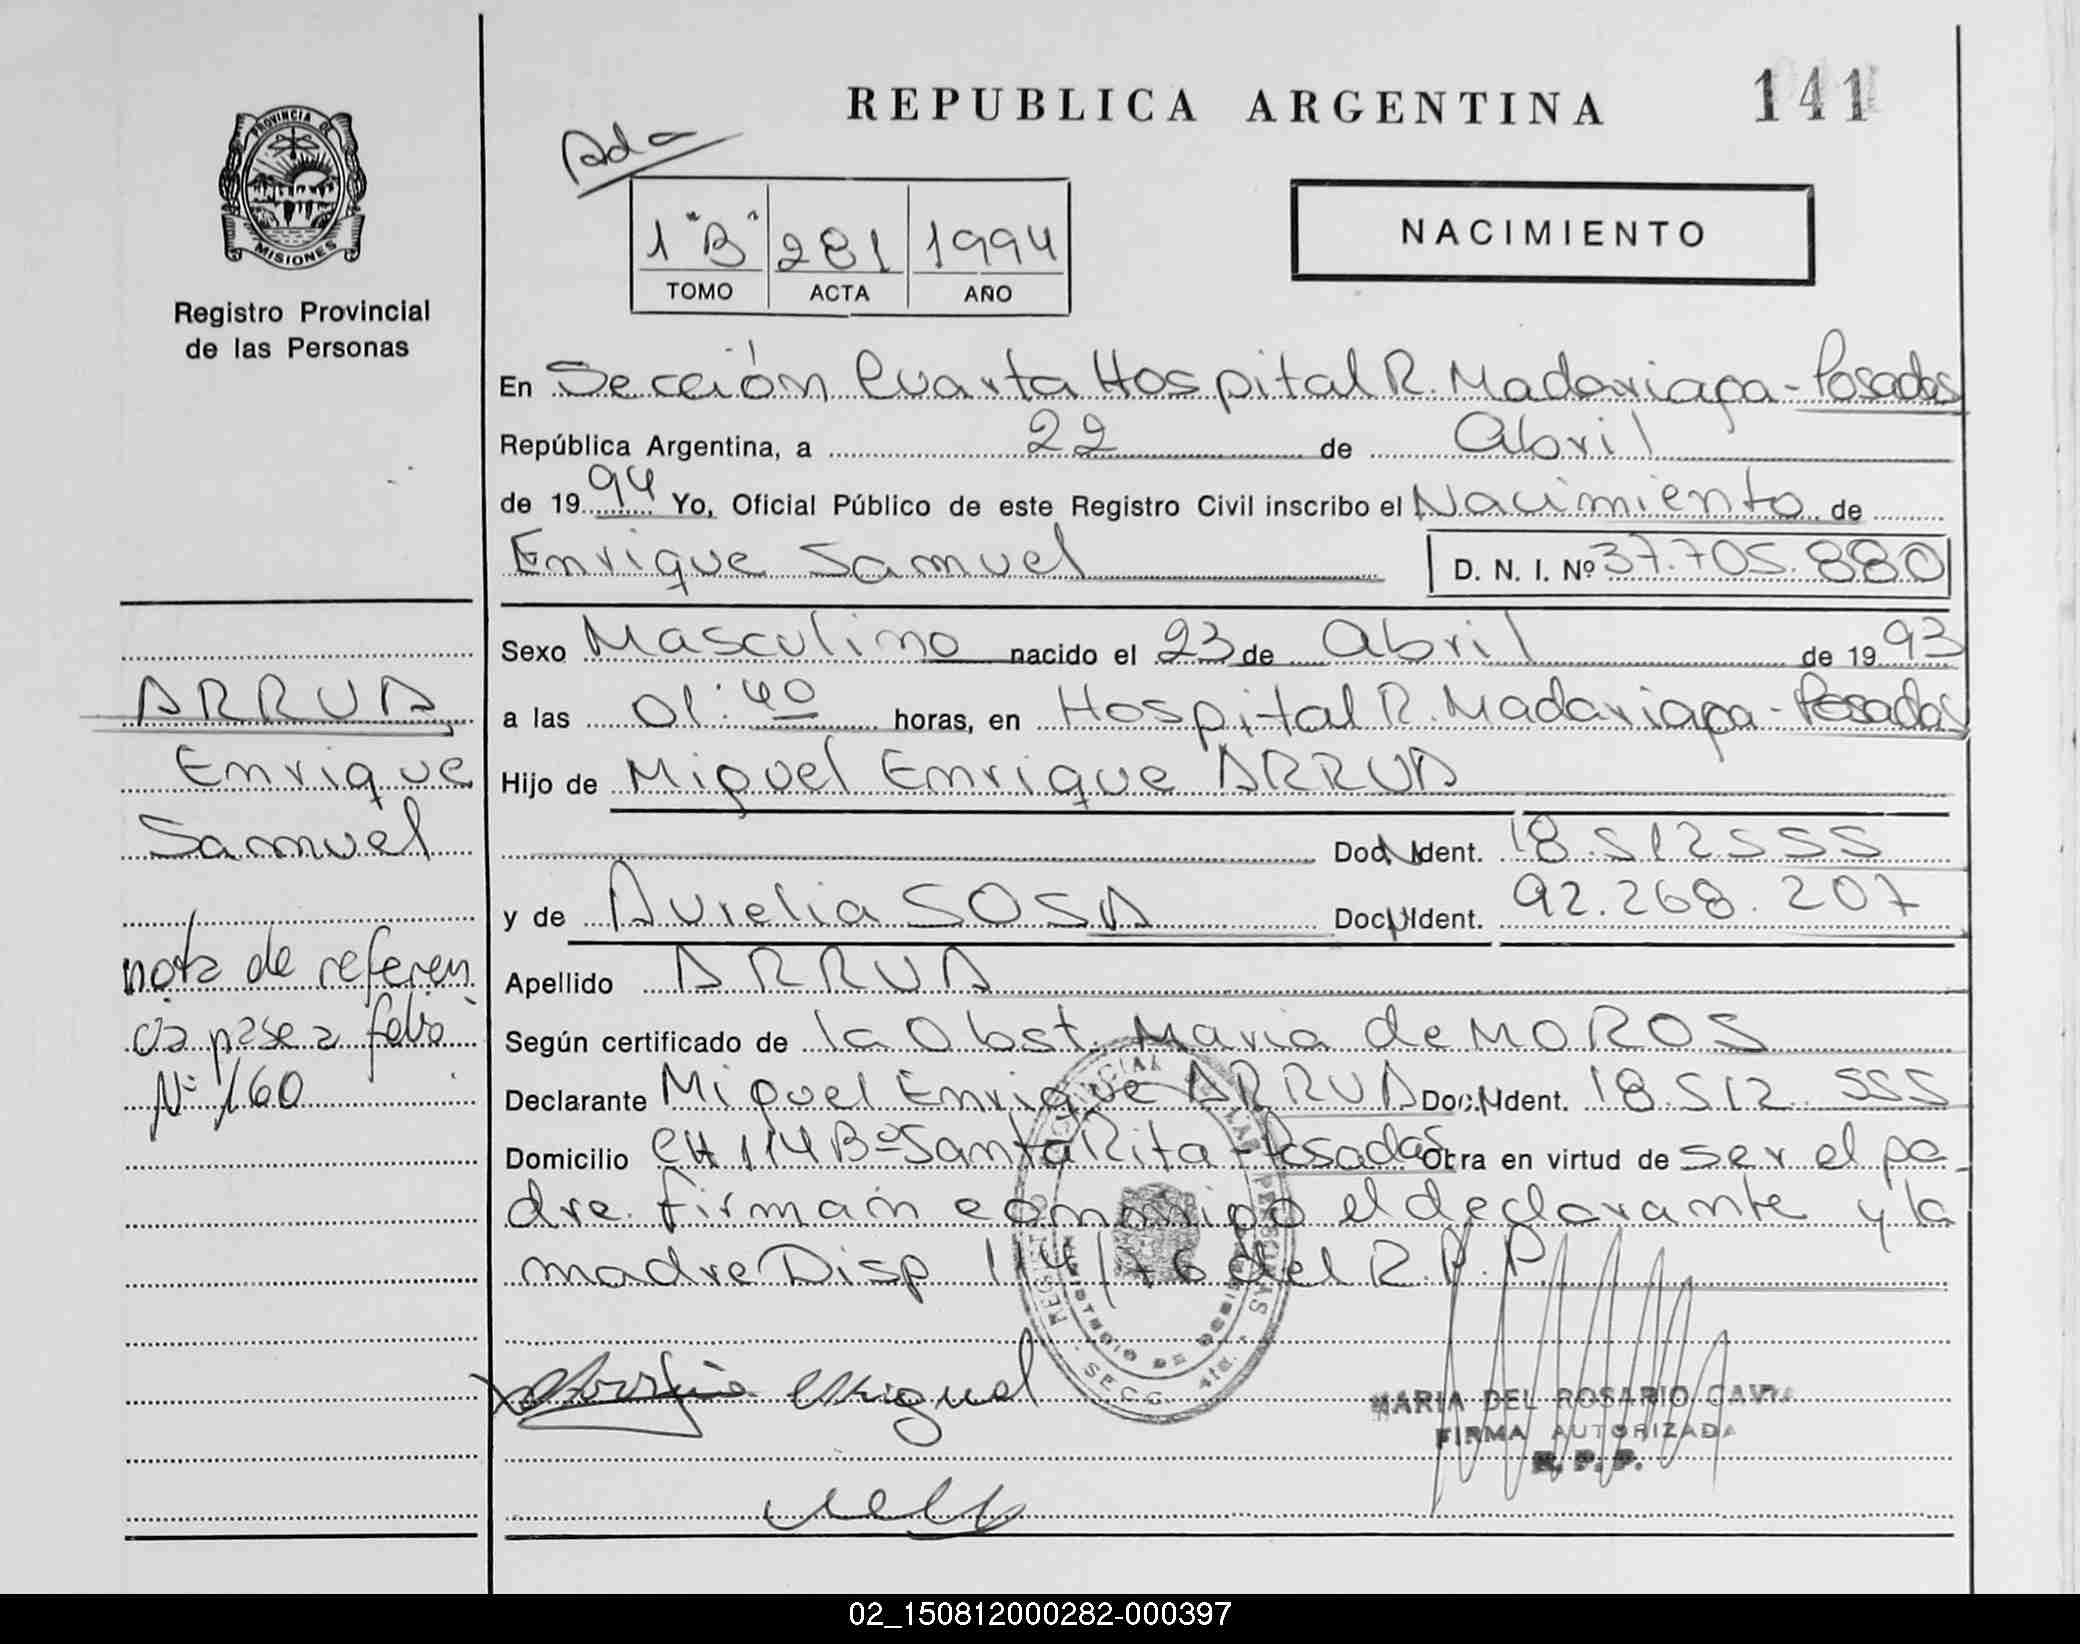 REPUBLICA ARGENTINA
141
PROVINCIA DE
MISIONES
Registro Provincial
de las Personas
1 "B" 281 1994
TOMO ACTA AÑO
NACIMIENTO
En Sección Cuarta Hospital R. Madariaga - Posadas
República Argentina, a 22 de Abril
de 1994 Yo, Oficial Público de este Registro Civil inscribo el Nacimiento de
Enrique Samuel D. N. I. Nº 37.705.880
Sexo Masculino nacido el 23 de Abril de 1993
a las 01:40 horas, en Hospital R. Madariaga - Posadas
Hijo de Miguel Enrique ARRUA
Doc. N Ident. 18.512555
y de Aurelia SOSA Doc. N Ident. 92.268.207
Apellido ARRUA
Según certificado de la Obst. Maria de MOROS
Declarante Miguel Enrique ARRUA Doc. N Ident. 18.512.555
Domicilio CH 114 Bº Santa Rita - Posadas Obra en virtud de ser el pa-
dre. firman conmigo el declarante y la
madre Disp 114/76 del R.P.P.
Miguel
MARIA DEL ROSARIO
FIRMA AUTORIZADA
R. P. P.
ARRUA
Enrique
Samuel
nota de referen
cia pase a folio
Nº 160
02_150812000282-000397